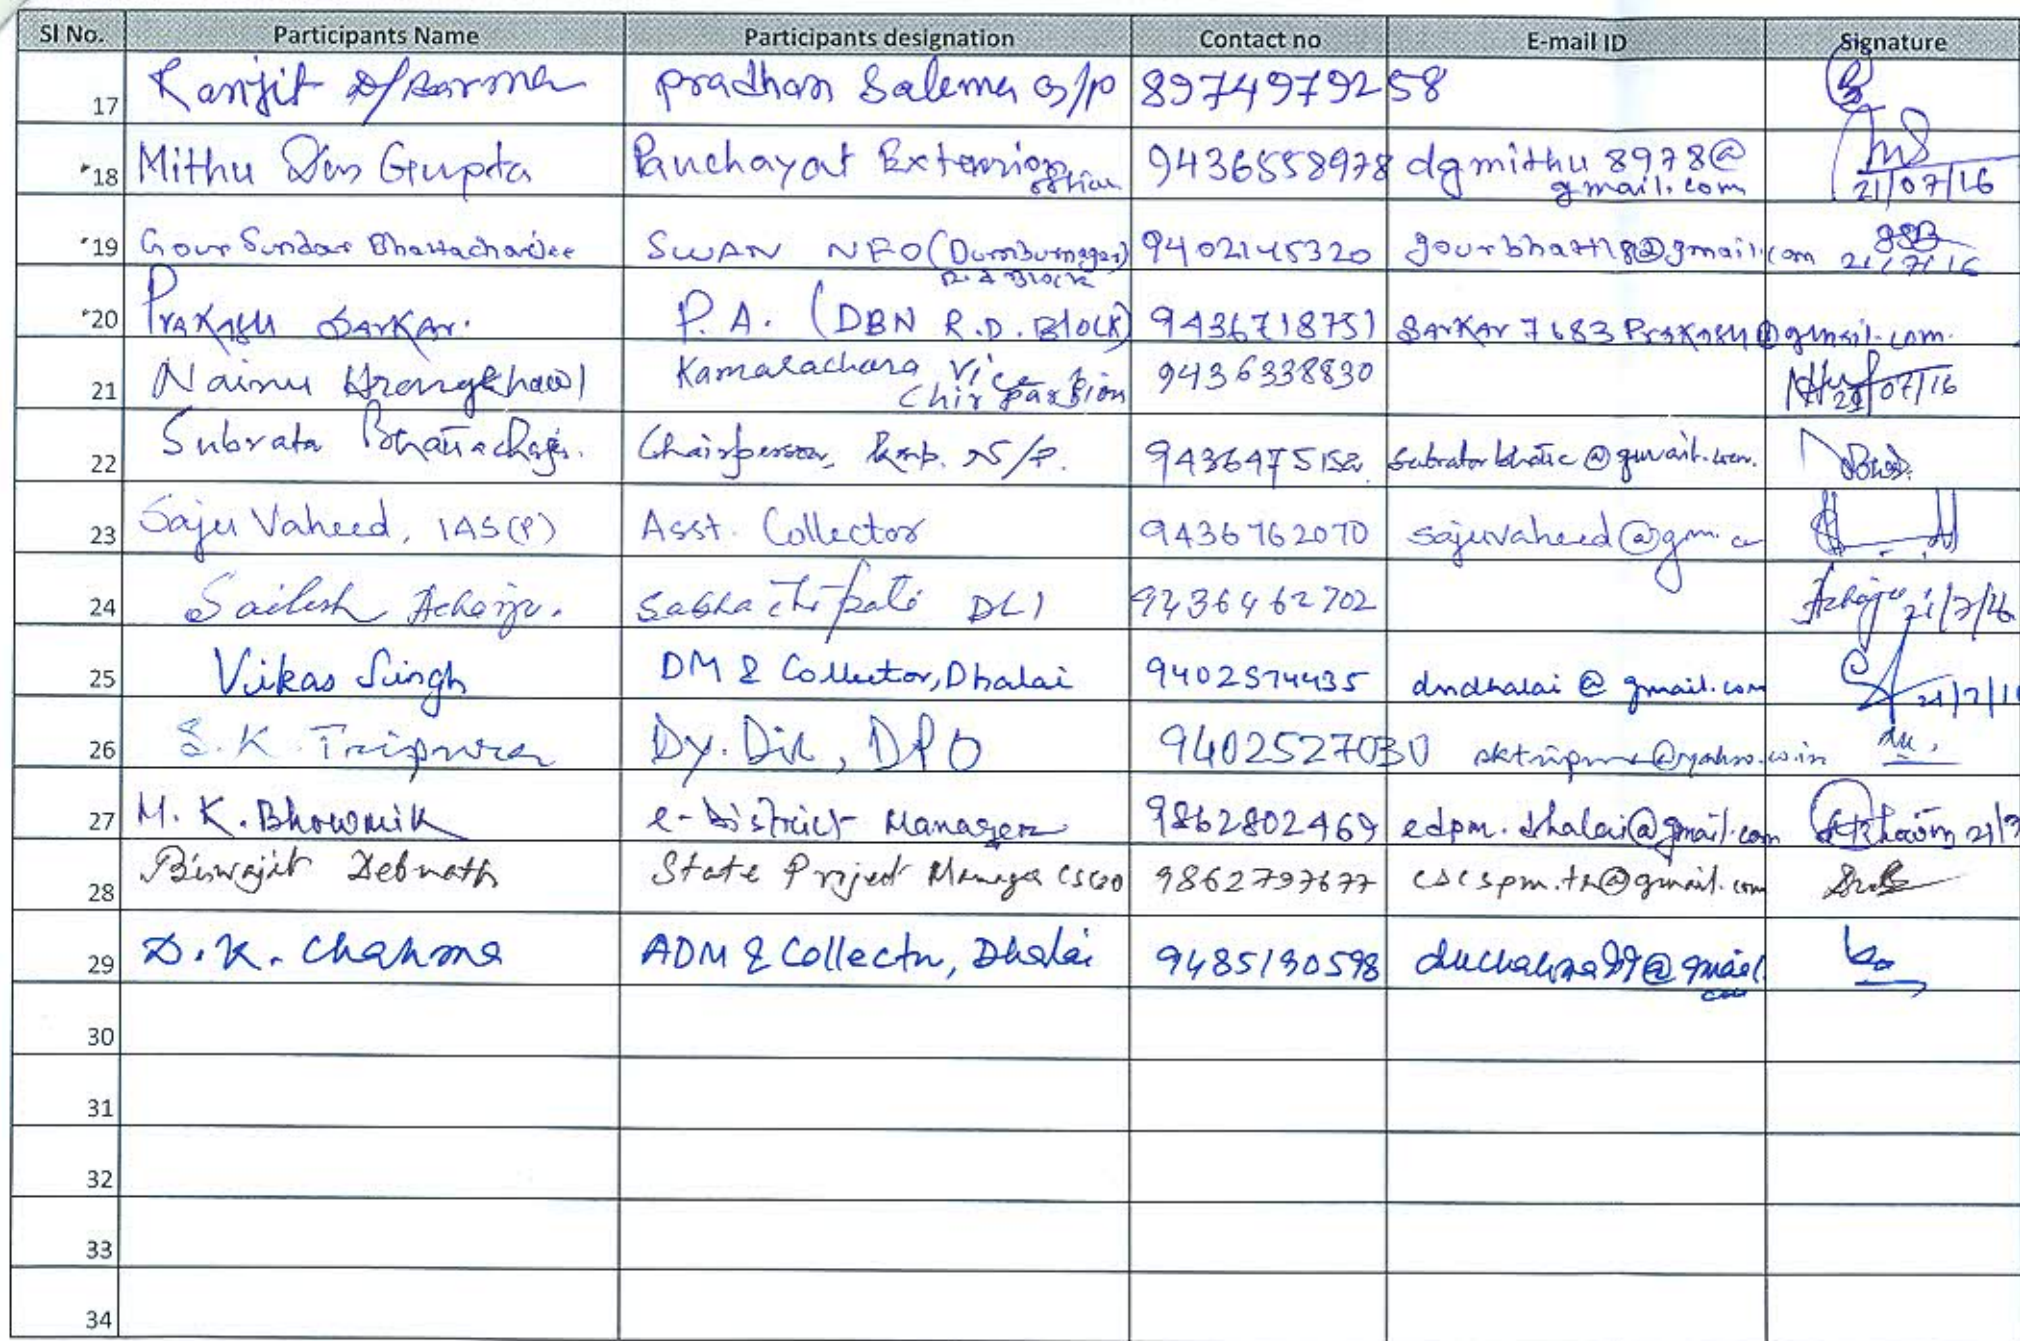 Sl No. Participants Name Participants designation Contact no E-mail ID Signature
17 Ranjit D/barma pradhan Salema G/p 8974979258
18 Mithu Das Gupta Panchayat Extension 9436558978 dgmithu8978@
gmail.com 21/07/16
19 Gour Sundar Bhattacharjee SWAN NFO (Dumburnagar) 9402145320 gourbhatt18@gmail.com GSB
R.D Block 21/7/16
20 Prakash Sarkar. P.A. (DBN R.D. Block) 9436718751 Sarkar7683Prakash@gmail.com.
21 Nainu Hrangkhawl Kamalachara Vice 9436338830
Chirparsion 07/16
22 Subrata Chairperson, 9436475152
23 Saju Vaheed, IAS(P) Asst. Collector 9436762070 sajuvaheed@gm
24 Sailesh Acharje. DLI 9436462702 21/7/16
25 Vikas Singh DM & Collector, Dhalai 9402574435 dmdhalai@gmail.com 21/7/1
26 S.K Tripura Dy. Dir, DPO 9402527030 sktripura@yahoo.co.in
27 M. K. Bhowmik e-District Manager 9862802469 edpm.dhalai@gmail.com
28 Biswajit Debnath State Project Manager 9862797677 cscspm.tr@gmail.com
29 D. K. Chakma ADM & Collector, Dhalai 9485130598
30
31
32
33
34